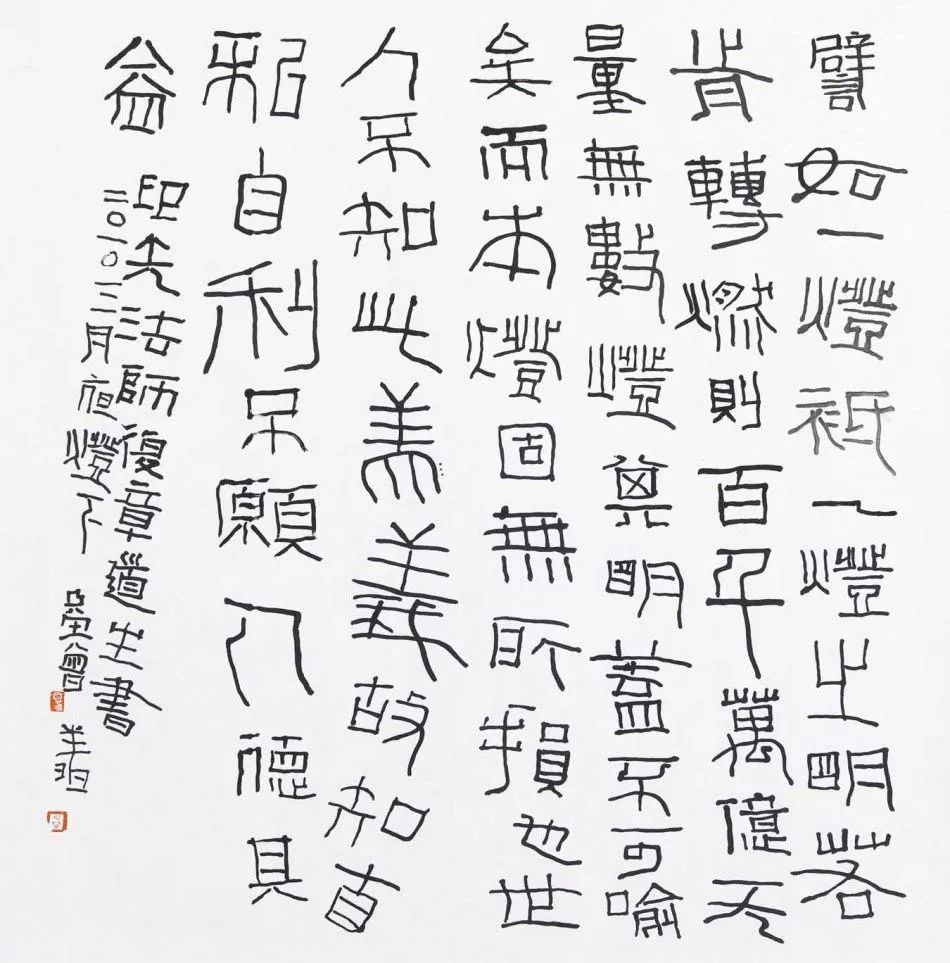 譬如一燈祇一燈之明若
肯轉燃則百千萬億无
量無數燈其明蓋不可喻
矣而本燈固無所損也世
人不知此義故知自
私自利不願人德其
益
印光法師復章道生書
二〇一〇三月夜燈下